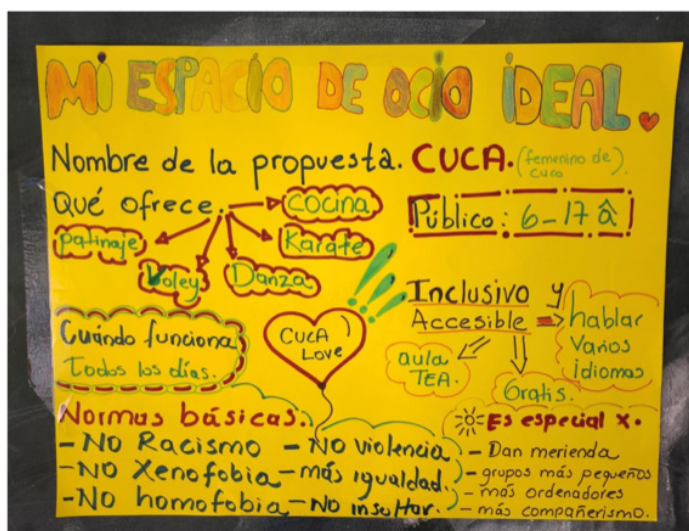 MI ESPACIO DE OCIO IDEAL.
Nombre de la propuesta. CUCA. (femenino de cuco).
Qué ofrece.
cocina
Karate
Danza
Voley
patinaje
Público: 6-17 â
Inclusivo y
Accesible
hablar
varios
idiomas
aula
TEA.
Gratis.
Cuándo funciona
Todos los días.
CUCA
LOVE
Normas básicas.
- NO Racismo
- NO Xenofobia
- NO homofobia
- NO violencia
- más igualdad.
- NO insultar.
Es especial x.
- Dan merienda
- grupos más pequeños
- más ordenadores
- más compañerismo.